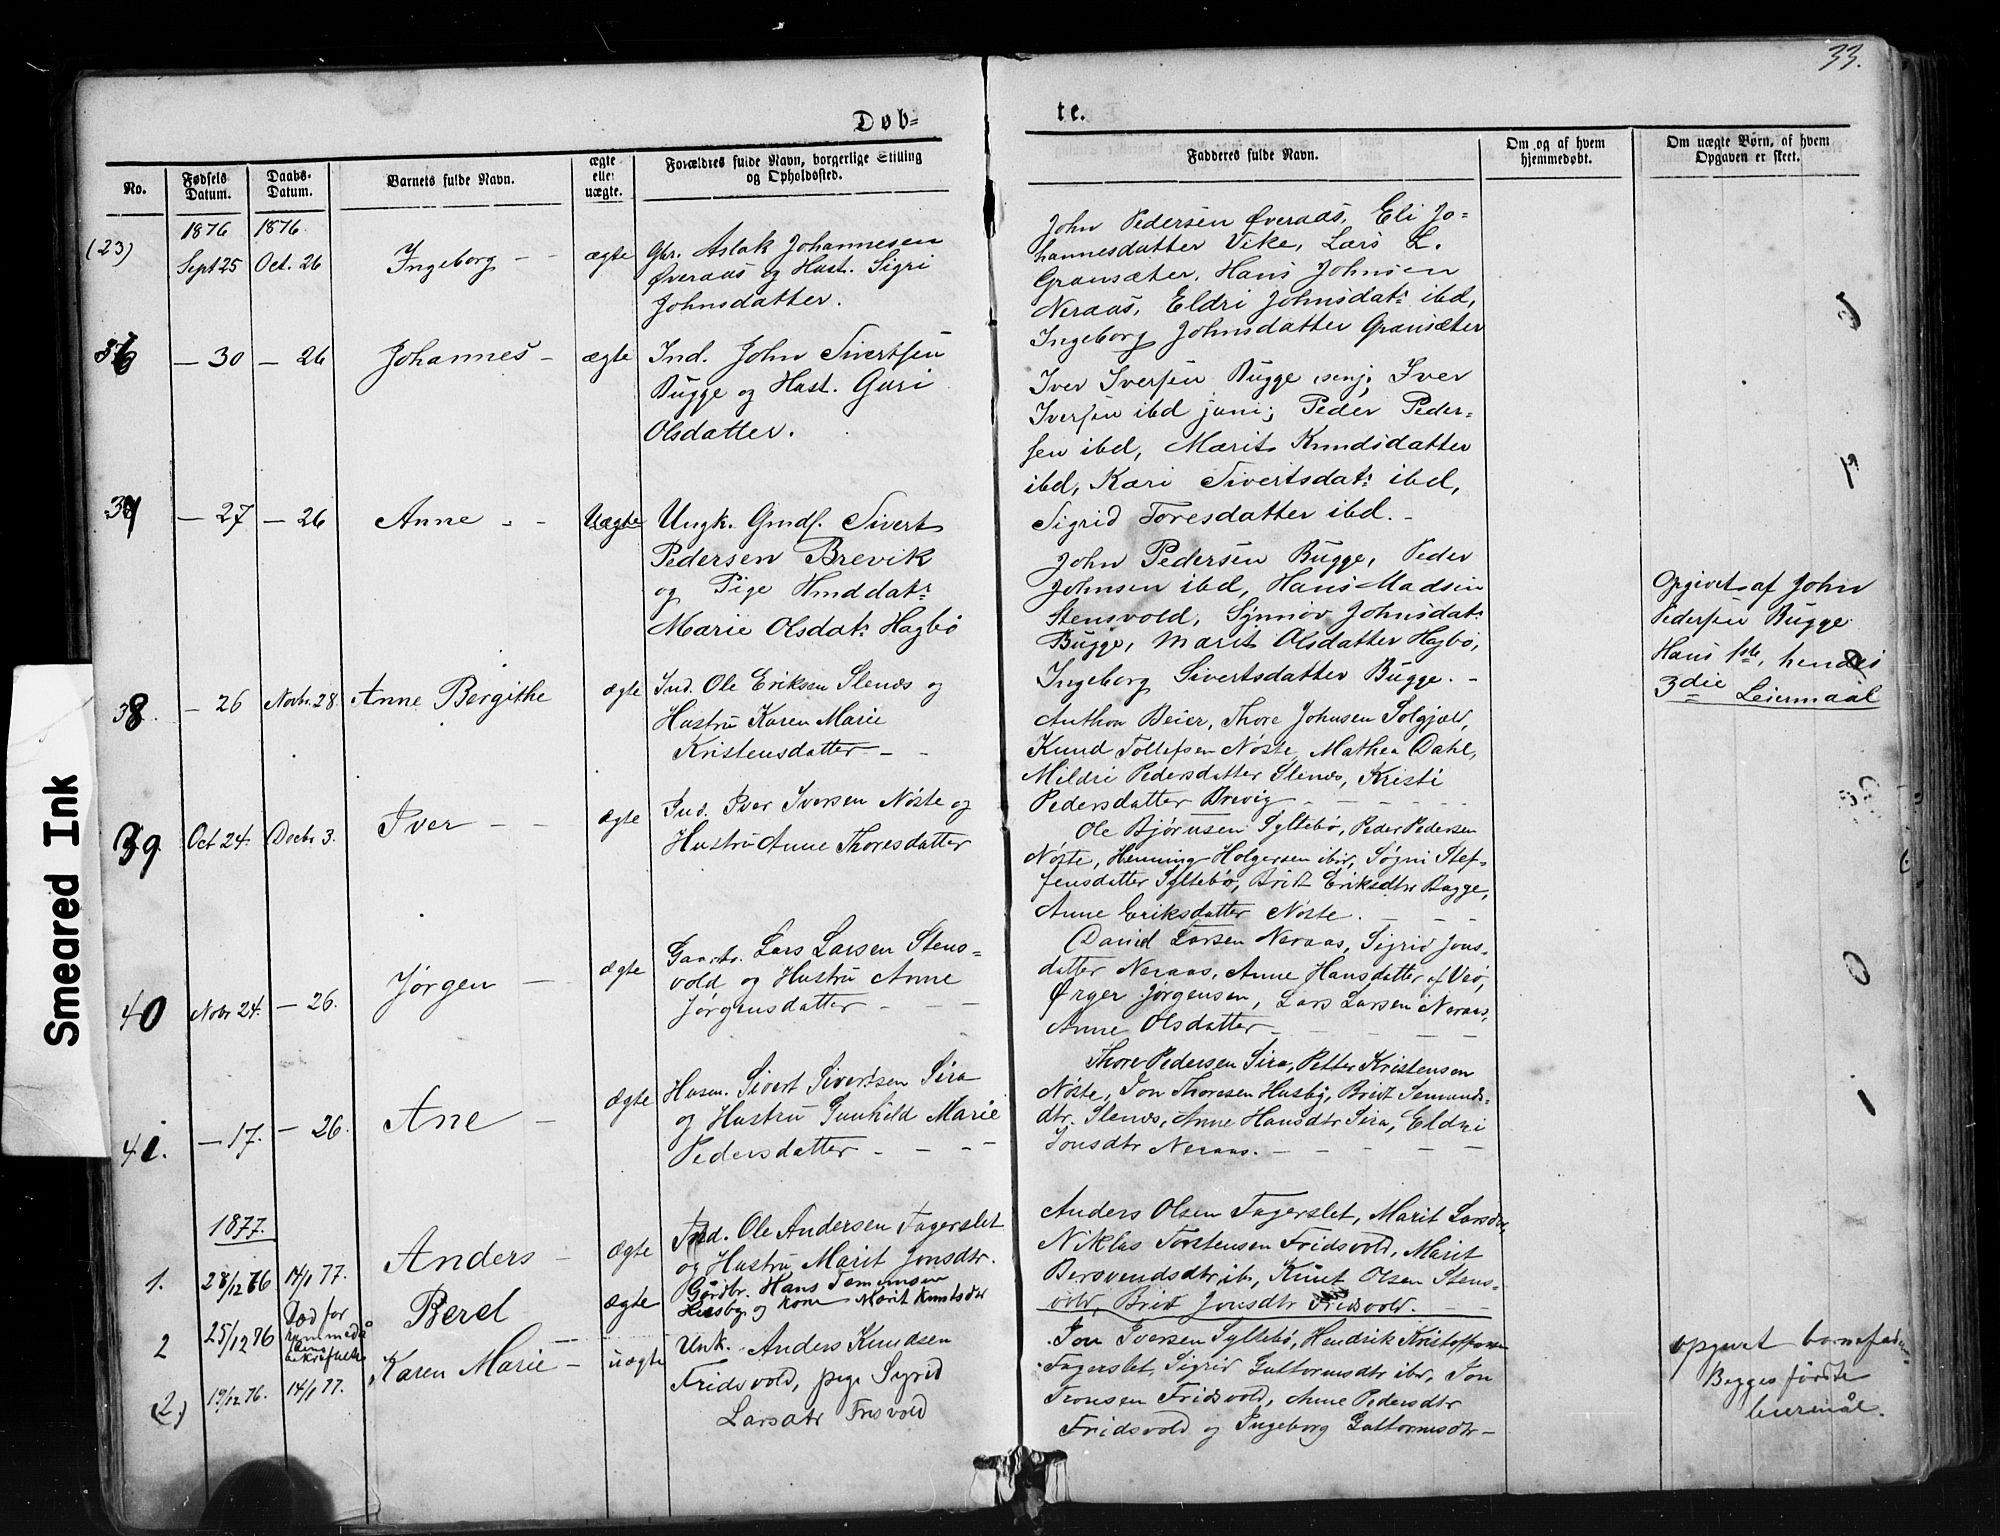 33.
Døb=
te.
No.
Fødsels Datum.
Daabs- Datum.
Barnets fulde Navn.
ægte eller uægte.
Forældres fulde Navn, borgerlige Stilling og Opholdssted.
Fadderes fulde Navn.
Om og af hvem hjemmedøbt.
Om uægte Børn, af hvem Opgaven er skeet.
1876 1876
(23) Sept 25 Oct. 26 Ingeborg - - ægte
Gbr. Aslak Johannesen
Øveraas og Hust. Sigri
Johnsdatter.
John Pedersen Øveraas, Eli Jo-
hannesdatter Vike, Lars L.
Gransæter, Hans Johnsen
Neraas, Eldri Johnsdatr ibd,
Ingeborg Johnsdatter Gransæter
36 - 30 - 26 Johannes - ægte
Ind. John Sivertsen
Bugge og Hust. Guri
Olsdatter.
Iver Iversen Bugge senj; Iver
Iversen ibd juni; Peder Peder-
sen ibd, Marit Knudsdatter
ibd, Kari Sivertsdatr ibd,
Sigrid Toresdatter ibd. -
37 - 27 - 26 Anne - - Uægte
Ungk. Gmdf. Sivert
Pedersen Brevik
og Pige
Marie Olsdatr Hagbø
John Pedersen Bugge, Peder
Johnsen ibd, Hans Madsen
Stensvold, Synnøv Johnsdatr
Bugge, Marit Olsdatter Hagbø,
Ingeborg Sivertsdatter Bugge. -
Opgivet af John
Pedersen Bugge
Hans 1ste, hendes
3die Leiermaal
38 - 26 Novbr. 28. Anne Bergithe ægte
Ind. Ole Eriksen Slenes og
Hustru Karen Marie
Kristensdatter - -
Anthon Beier, Thore Johnsen Solgjæld,
Knud Tollefsen Nøste, Mathea Dahl,
Mildri Pedersdatter Slenes, Kristi
Pedersdatter Brevig - - - -
39 Oct 24. Decbr 3. Iver - - ægte
Ind. Iver Iversen Nøste og
Hustru Anne Thoresdatter
Ole Bjørnsen Syltebø, Peder Pedersen
Nøste, Henning Holgersen ibid, Søgni Stef-
fensdatter Syltebø, Brit Eriksdtr Bugge,
Anne Eriksdatter Nøste. - - -
40 Nobr 24. - 26. Jørgen - ægte
Gaardbr. Lars Larsen Stens-
vold og Hustru Anne
Jørgensdatter - - -
David Larsen Neraas, Sigrid Jons-
datter Neraas, Anne Hansdatter af Veø,
Ørger Jørgensen, Lars Larsen Neraas,
Anne Olsdatter - - - -
41. - 17. - 26. Ane - ægte
Husm. Sivert Sivertsen Sira
og Hustru Gunhild Marie
Pedersdatter - - -
Thore Pedersen Sira, Petter Kristensen
Nøste, Jon Thoresen Husby, Brit Semunds-
dtr. Slenes, Anne Hansdtr Sira, Eldri
Jonsdtr Neraas. - - - -
1877.
1. 28/12 76 14/1 77. Anders - ægte
Ind. Ole Andersen Fagerslet
og Hustru Marit Jonsdtr.
Anders Olsen Fagerslet, Marit Larsdtr,
Niklas Torstensen Fridsvold, Marit
Bersvendsdtr ib, Knut Olsen Stens-
vold, Brit Jonsdtr Fridsvold. - -
2 25/12 76 Død for Berel ægte
Gårdbr. Hans
Husby og kone Marit Knutsdtr
(2.) 19/12 76. 14/1 77. Karen Marie - uægte
Unk. Anders Knudsen
Fridsvold, pige Syrid
Larsdtr Frisvold
Jon Iversen Syltebø, Hendrik Kristoffersen
Fagerslet, Sigrid Guttormsdtr ibr, Jon
Tronsen Fridsvold, Anne Pedersdtr
Fridsvold og Ingeborg Guttormsdtr -
opgivet barnefader
Begges første
leiermål.
Smeared Ink